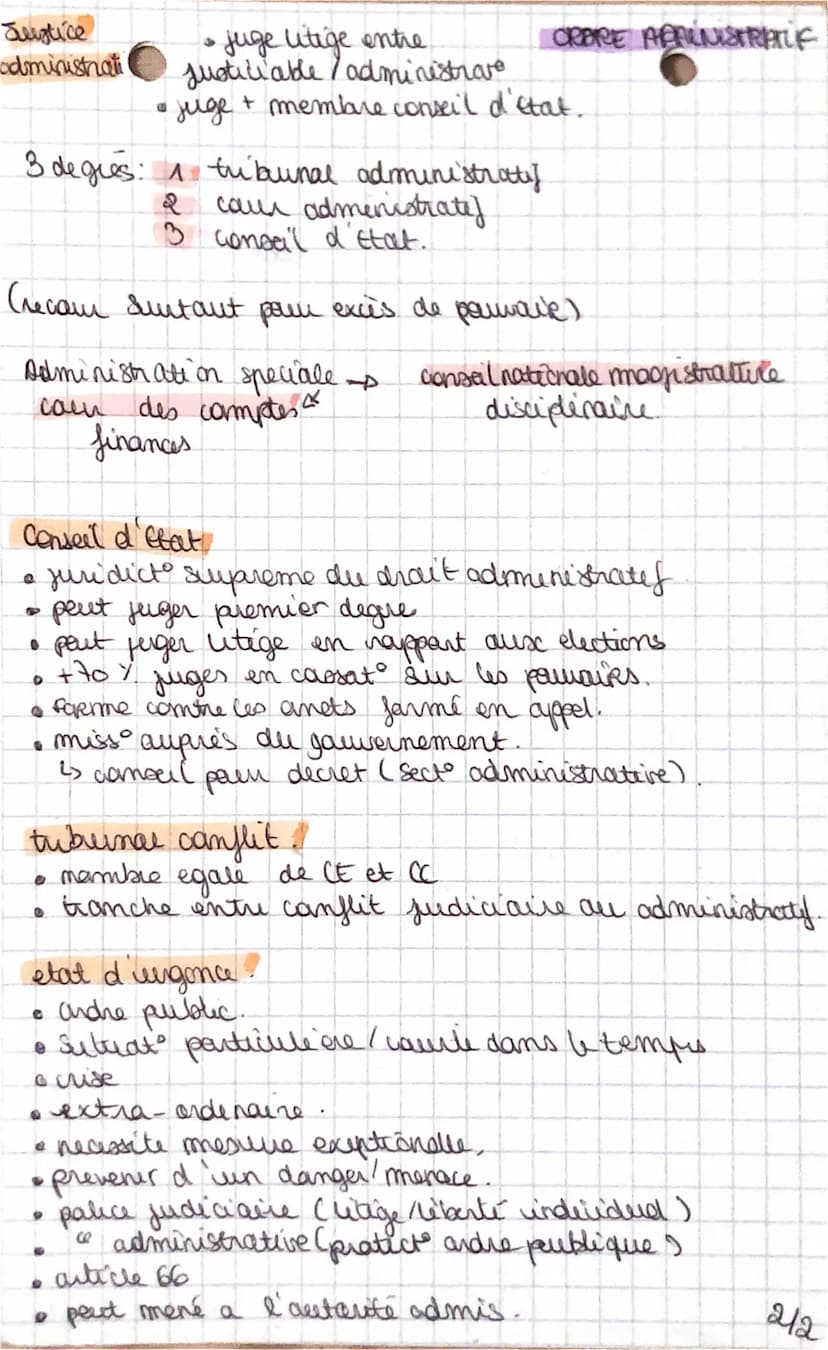 ORDRE ADMINISTRATIF
Justice
administrati
• juge litige entre
justiciable / administrat°
• juge + membre conseil d'Etat.
3 degrés: 1 tribunal administratif
2 cour administratif
3 conseil d'Etat.
(recour surtout pour excès de pouvoir)
Administration speciale → conseil nationale magistrature
cour des comptes disciplinaire
finances
Conseil d'Etat
• juridict° supreme du droit administratif
• peut juger premier degre
• peut juger litige en rapport aux elections
• +70 % juges en cassat° sur les pouvoirs.
• forme contre les arrets fermé en appel.
• miss° auprès du gouvernement.
↳ conseil pour decret (sect° administrative).
tribunal conflit !
• membre egale de CE et CC
• tranche entre conflit judiciaire ou administratif.
etat d'urgence !
• ordre public.
• situat° particulière / courte dans le temps
• crise
• extra-ordenaire.
• necessite mesure exeptionnelle,
• prevenir d'un danger/menace.
• police judiciaire (litige/liberté individuel)
• " administrative (protect° ordre publique)
• article 66
• peut mené a l'autorité admis.
2/2